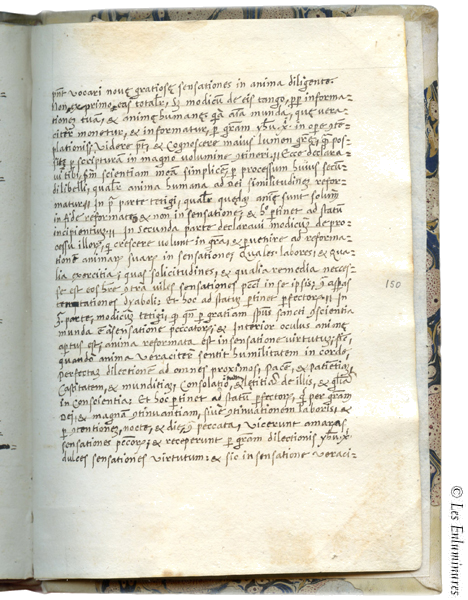 pnt vocari nove gratiose sensationes in anima diligente.
Non exprimo eas totalr, sed modicum de eis tango, pp informa-
tionem tua, et anime humane: qa ata munda, que vera-
citer monetur, et informatur, p gram yhu x in ope
plationis; videre pt et cognoscere maius lumen gre,
p scripturam in magno volumine itineri: Ecce declara-
vi tibi, scientiam mea simplice, p processum huius secudi
libelli, qualr anima humana ad dei similitudine refor-
matur. In p parte tetigi, qualr queda anime sunt solum
in fide reformate, et non in sensatione; et hoc ptinet ad statu
incipientium. In secunda parte declaravi modicum de pro-
cessu illor, q crescere volunt in gra, et pvenire ad reforma-
tione animar suar in sensatione. Quales labores, et qua-
lia exercitia; quas solicitudines, et qualia remedia necesse
se est eos hre contra viles sensationes in se ipsis,
temtationes dyaboli. Et hoc ad status ptinet pfector. In
3 parte, modicum tetigi, q qn p gratiam spus sancti
munda e a sensatione peccator, et interior oculus anime
aptus est, anima reformata est in sensatione virtutu;
quando anima veraciter sentit humilitatem in corde,
perfecta dilectione ad omnes proximos, pace, et patietia,
castitatem, et munditia, consolatio, et letitia de illis, et
in conscientia: Et hoc ptinet ad statu pfector, q per gram
dei, et magnam continuantiam, sive continuationem laboris, et
p contentione, nocte, et die peccata, vicerunt amaras,
sensationes peccor; et receperunt p gram dilectionis yhu x
dulces sensationes virtutum: et sic in sensatione veraci-
150
© Les Enluminures